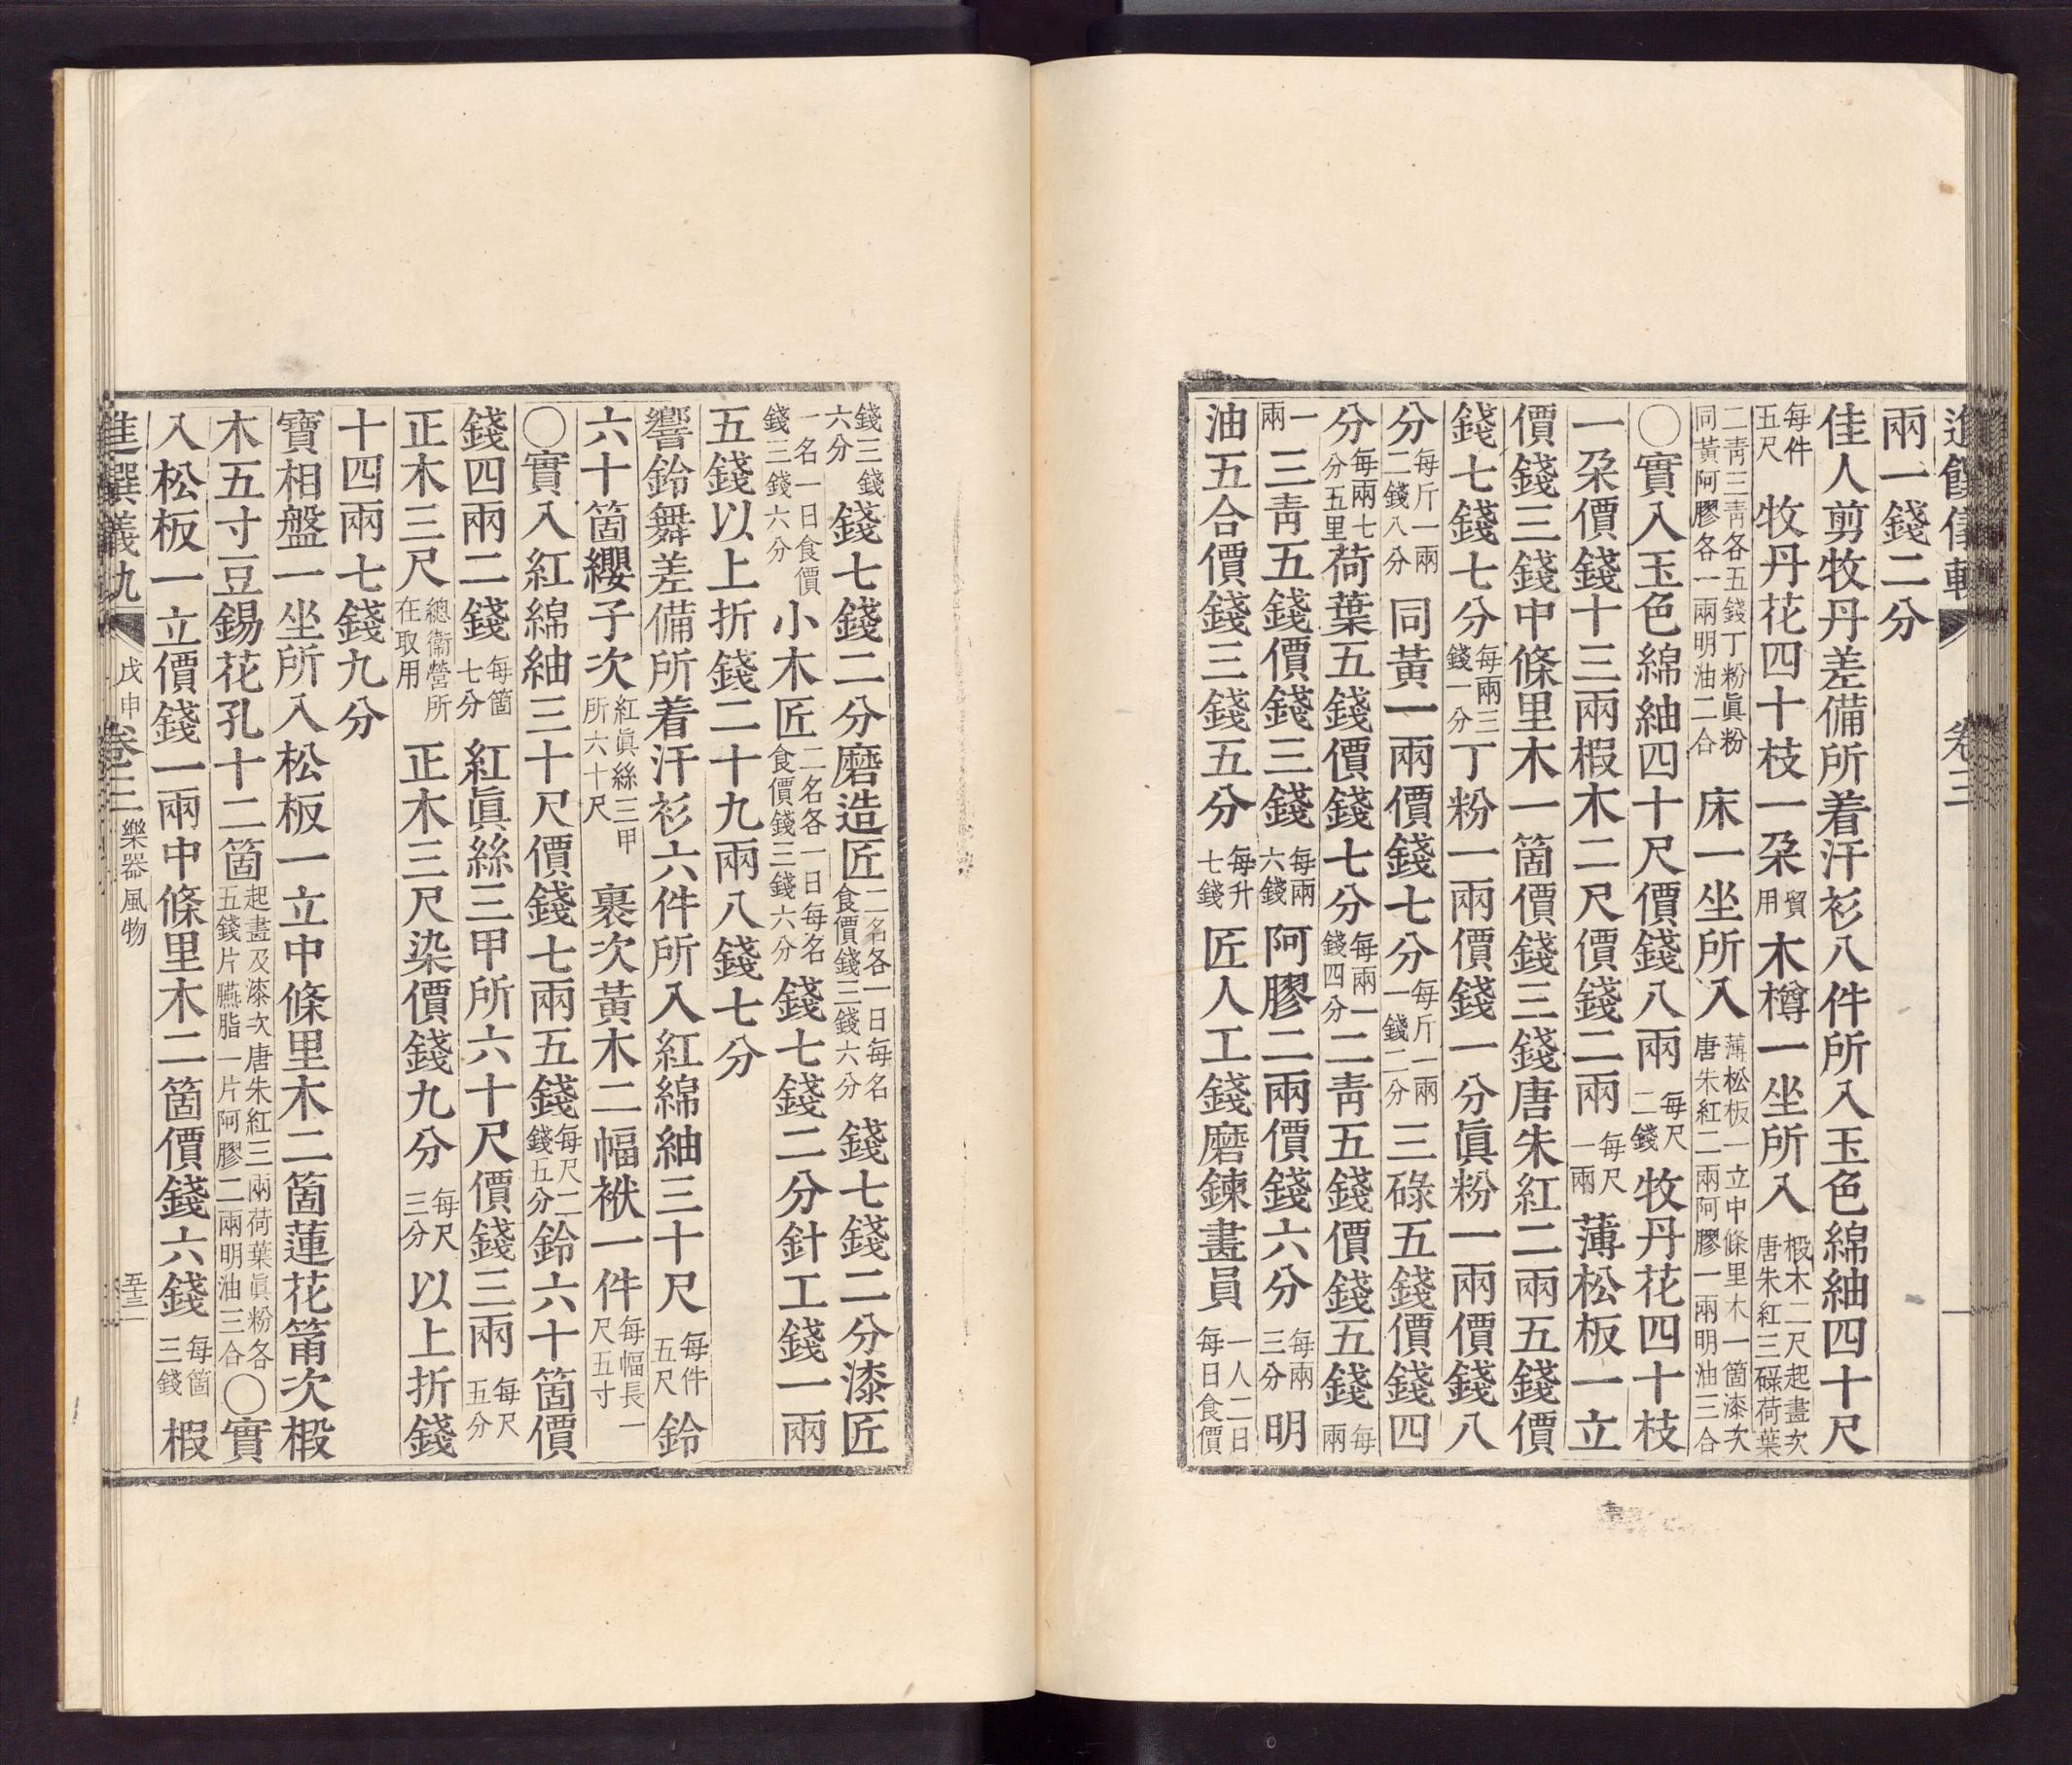 進饌儀軌 卷三
兩一錢二分
佳人剪牧丹差備所着汗衫八件所入玉色綿紬四十尺
每件五尺牧丹花四十枝一朶貿用木樽一坐所入椴木二尺起畵次唐朱紅三碌荷葉
二靑三靑各五錢丁粉眞粉同黃阿膠各一兩明油二合床一坐所入薄松板一立中條里木一箇漆次唐朱紅二兩阿膠一兩明油三合
〇實入玉色綿紬四十尺價錢八兩每尺二錢牧丹花四十枝
一朶價錢十三兩椵木二尺價錢二兩每尺一兩薄松板一立
價錢三錢中條里木一箇價錢三錢唐朱紅二兩五錢價
錢七錢七分每兩三錢一分丁粉一兩價錢一分眞粉一兩價錢八
分每斤一兩二錢八分同黃一兩價錢七分每斤一兩一錢二分三碌五錢價錢四
分每兩七分五里荷葉五錢價錢七分每兩一錢四分二靑五錢價錢五錢每兩
一兩三靑五錢價錢三錢每兩六錢阿膠二兩價錢六分每兩三分明
油五合價錢三錢五分每升七錢匠人工錢磨鍊畫員一人二日每日食價
錢三錢六分錢七錢二分磨造匠二名各一日每名食價錢三錢六分錢七錢二分漆匠
一名一日食價錢三錢六分小木匠二名各一日每名食價錢三錢六分錢七錢二分針工錢一兩
五錢以上折錢二十九兩八錢七分
響鈴舞差備所着汗衫六件所入紅綿紬三十尺每件五尺鈴
六十箇纓子次紅眞絲三甲所六十尺裹次黃木二幅袱一件每幅長一尺五寸
〇實入紅綿紬三十尺價錢七兩五錢每尺二錢五分鈴六十箇價
錢四兩二錢每箇七分紅眞絲三甲所六十尺價錢三兩每尺五分
正木三尺總衞營所在取用正木三尺染價錢九分每尺三分以上折錢
十四兩七錢九分
寶相盤一坐所入松板一立中條里木二箇蓮花筩次椴
木五寸豆錫花孔十二箇起畵及漆次唐朱紅三兩荷葉眞粉各五錢片臙脂一片阿膠二兩明油三合〇實
入松板一立價錢一兩中條里木二箇價錢六錢每箇三錢椵
進饌儀軌 戊申 卷三 樂器風物 五十三